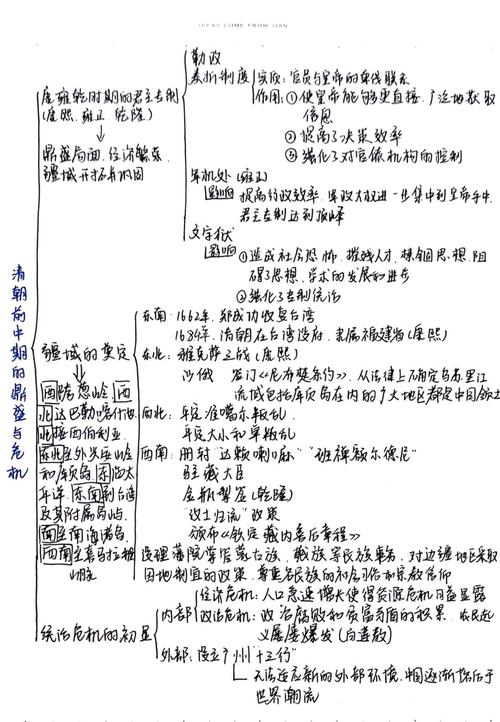 IDEAS COME FROM JIAN
清朝前中期的鼎盛与危机
康雍乾时期的君主专制
(康熙、雍正、乾隆)
鼎盛局面、经济繁荣、
疆域开拓和巩固
勤政
奏折制度
实质:官员与皇帝的单线联系
作用:①使皇帝能够更直接、广泛地获取
信息
②提高了决策效率
③强化了对官僚机构的控制
军机处(雍正)
影响
提高行政效率、军政大权进一步集中到皇帝手中
君主专制达到顶峰
文字狱
影响
①造成社会恐怖、摧残人才、禁锢思想、阻
碍了思想、学术的发展和进步
②强化了专制统治
疆域的奠定
西跨葱岭、西
北达巴勒喀什池
北接西伯利亚
东北至外兴安岭
和库页岛、东临太
平洋、东南到台湾
及其附属岛屿、
南至南海诸岛
西南至喜马拉雅
山脉
东南:1662年,郑成功收复台湾
1684年,清朝在台湾设府,隶属福建省(康熙)
东北:雅克萨之战(康熙)
沙俄 签订《尼布楚条约》,从法律上确定乌苏里江
流域包括库页岛在内的广大地区都是中国领土
西北:平定准噶尔叛乱
平定大小和卓叛乱
西南:册封"达赖喇嘛""班禅额尔德尼"
驻藏大臣
金瓶掣签(乾隆)
"改土归流"政策
颁布《钦定藏内善后章程》
设理藩院掌管蒙古族、藏族等民族事务,对边疆地区采取
因地制宜的政策、尊重各民族的和会习俗和宗教信仰
统治危机的初显
内部
经济危机:人口急速增长使得资源危机日益显露
政治危机:政治腐败和贫富矛盾的积累,农民起
义屡屡爆发(白莲教)
外部:设立广州"十三行"
无法适应新的外部环境,中国逐渐落后于
世界潮流